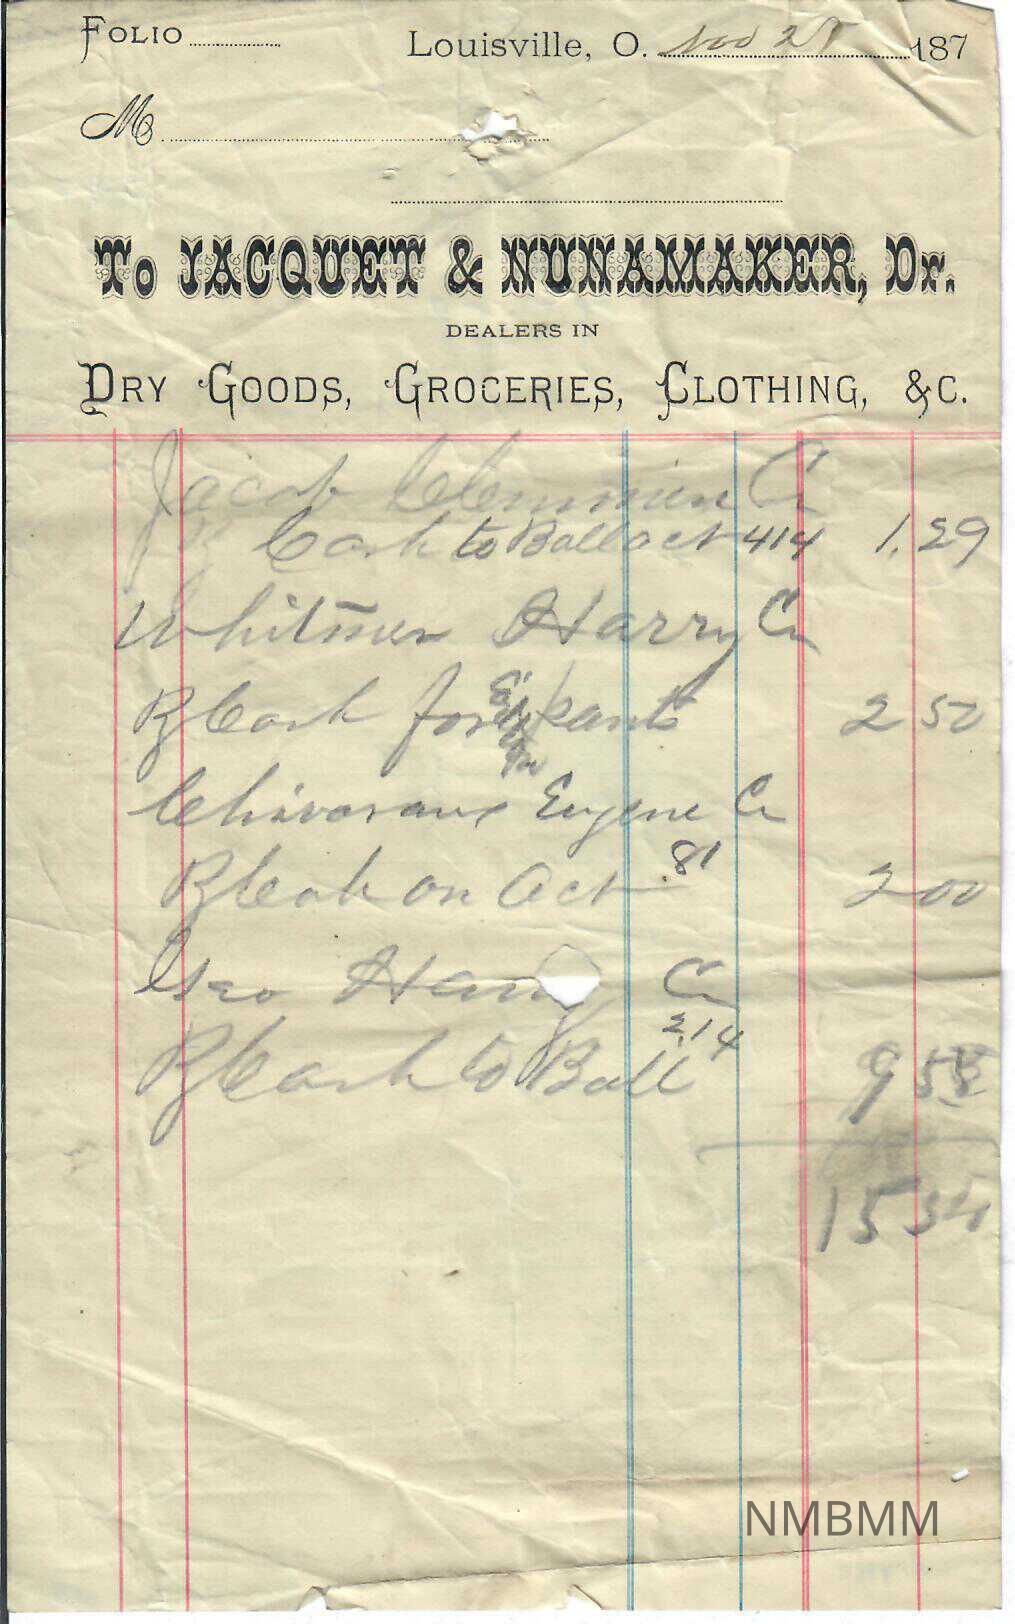 Folio
Louisville, O. Nov 28 187
M
To JACQUET & NUNAMAKER, Dr.
DEALERS IN
DRY GOODS, GROCERIES, CLOTHING, &C.
Jacob Clemmien Cr
Cash to Ball act 414 1.29
Whitmer Harry Cr
By Cash for pants 2 50
Eugene Cr
By Cash on Act 81 2 00
Geo Cr
By Cash to Ball 214 9 55
15 34
NMBMM